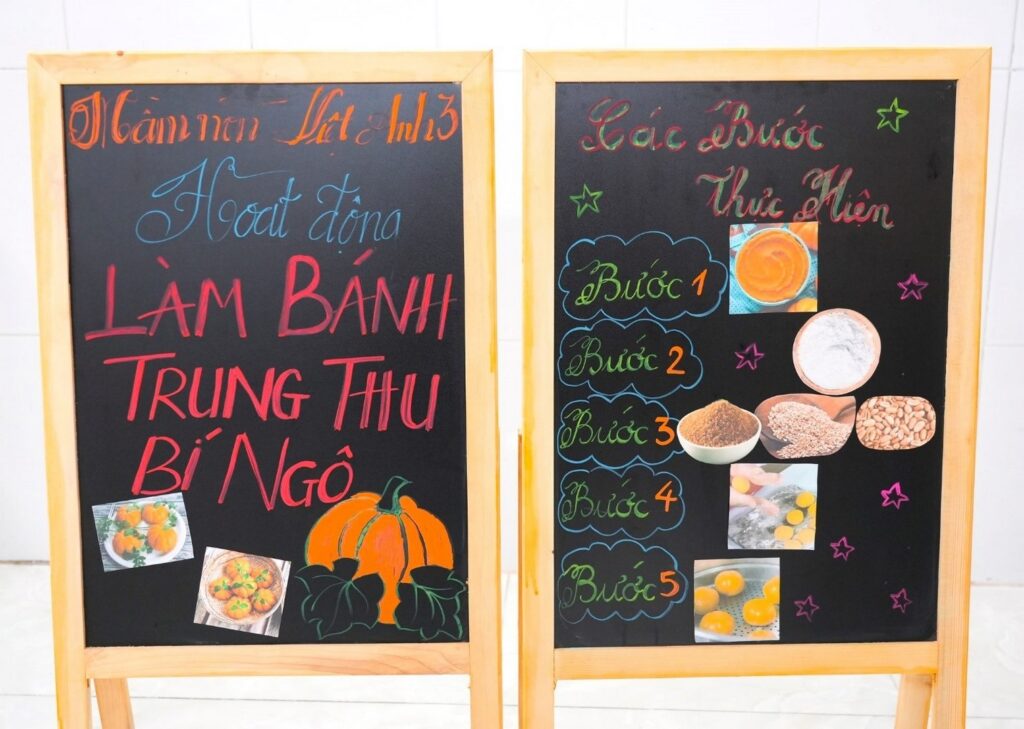 Mầm non Việt Anh 3
Hoạt động
LÀM BÁNH
TRUNG THU
BÍ NGÔ
Các Bước
Thực Hiện
Bước 1
Bước 2
Bước 3
Bước 4
Bước 5